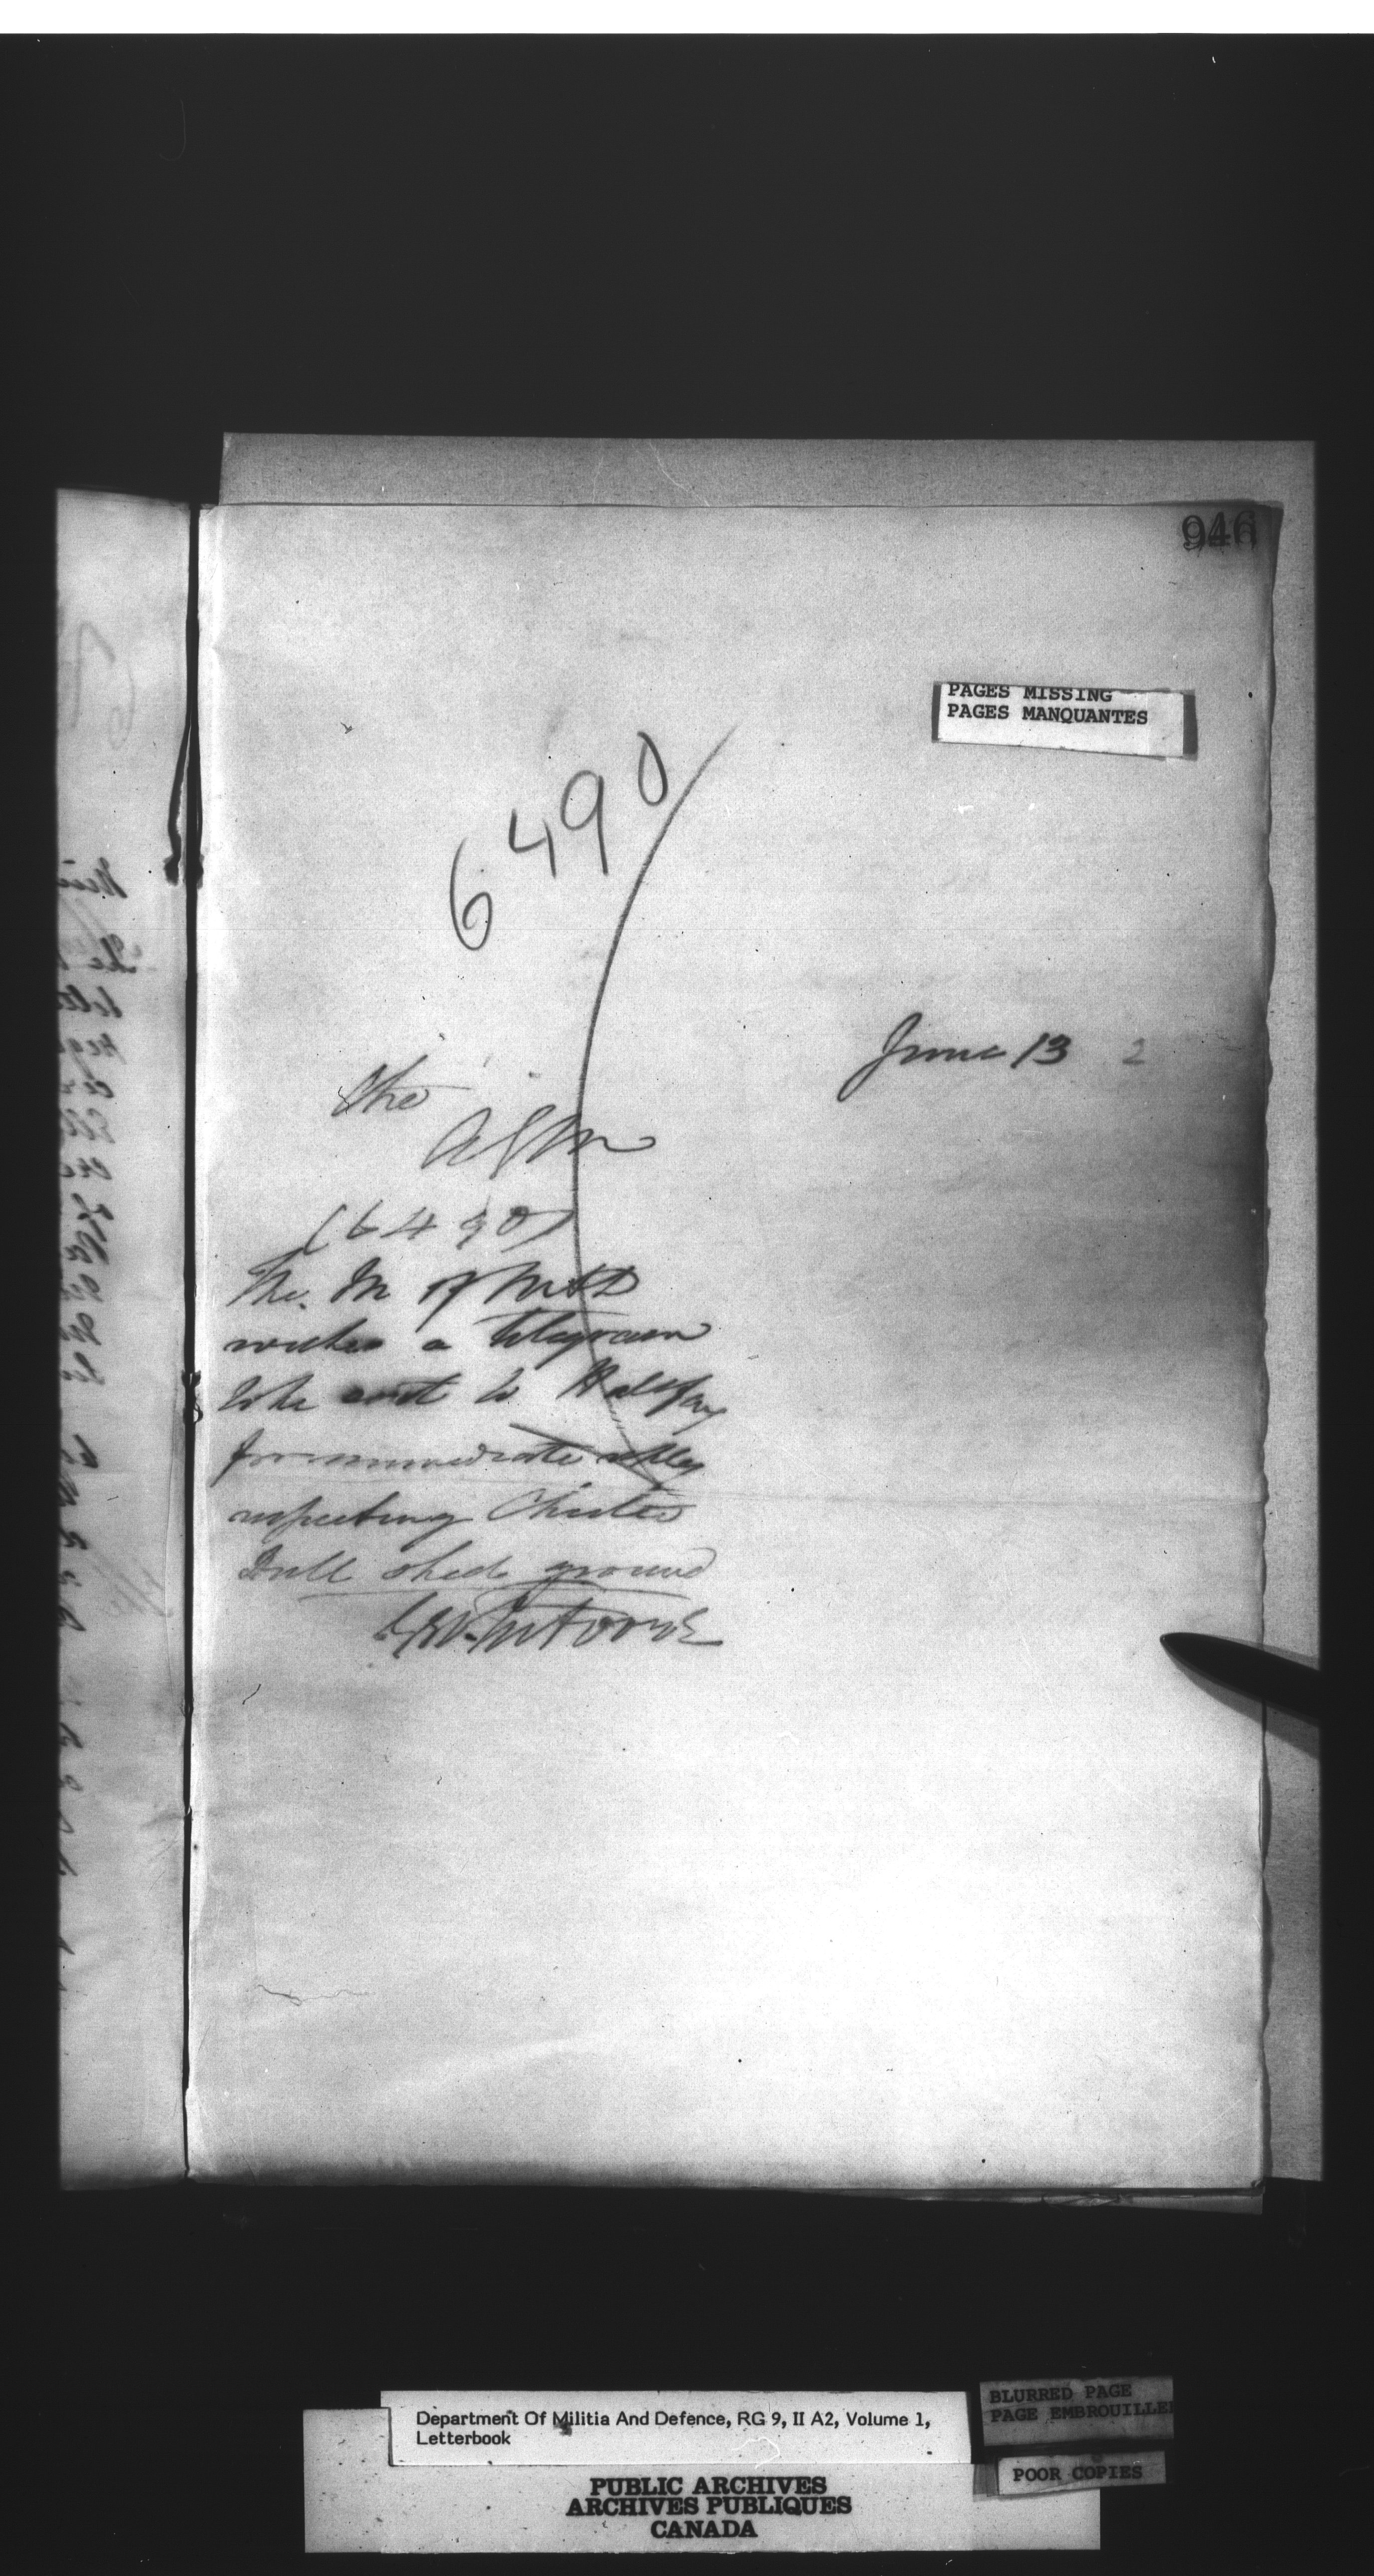 946
PAGES MISSING
PAGES MANQUANTES
6490
June 13 2
The
AGM
(6490)
The M of M & D
wishes a telegram
to be sent to Halifax
for immediate reply
respecting Chester
Drill shed ground
Department Of Militia And Defence, RG 9, II A2, Volume 1,
Letterbook
BLURRED PAGE
PAGE EMBROUILLEE
POOR COPIES
PUBLIC ARCHIVES
ARCHIVES PUBLIQUES
CANADA